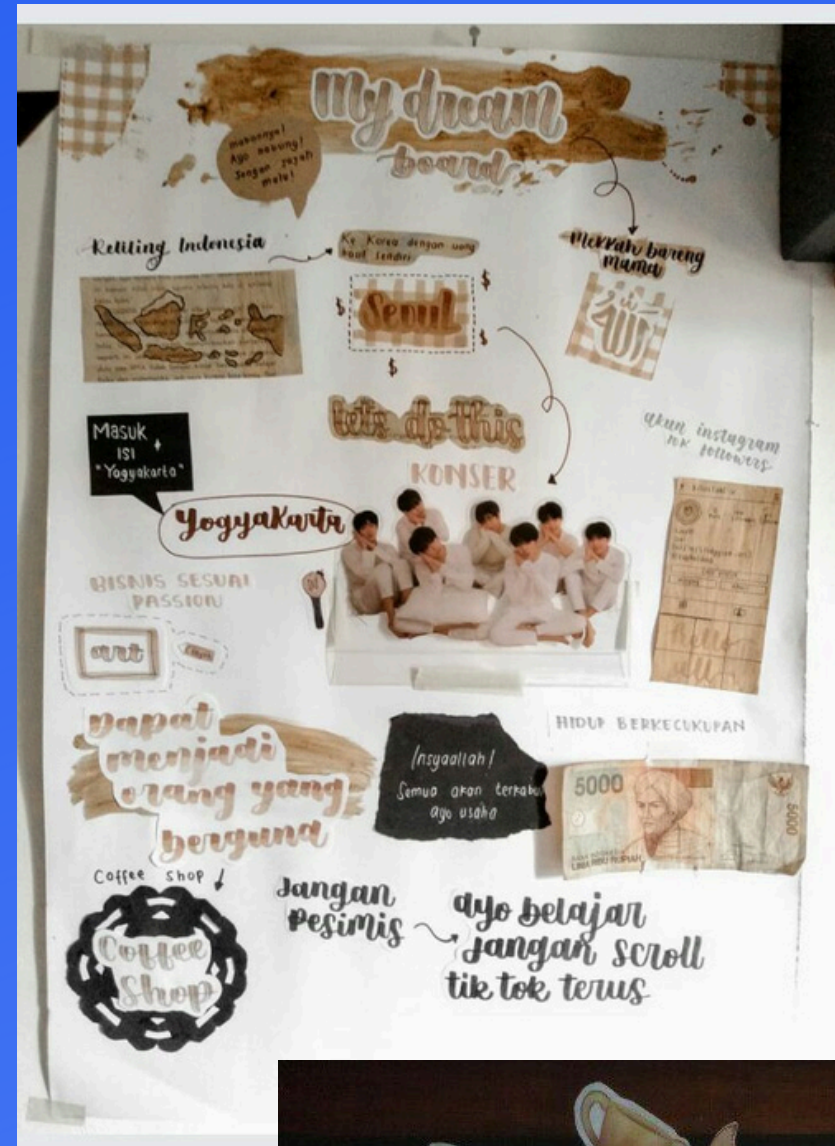 My dream
board
makannya!
Ayo nabung!
Jangan jajan
melu!
Keliling Indonesia
Ke Korea dengan uang
hasil sendiri
Seoul
$
$
$
$
Mekkah bareng
mama
الله
let's do this
KONSER
Masuk
ISI
"Yogyakarta"
Yogyakarta
akun instagram
10K followers
BISNIS SESUAI
PASSION
art
Dapat
menjadi
orang yang
berguna
Insyaallah!
Semua akan terkabul
ayo usaha
HIDUP BERKECUKUPAN
5000
5000
LIMA RIBU RUPIAH
Coffee shop
Coffee
Shop
Jangan
Pesimis
ayo belajar
jangan scroll
tik tok terus